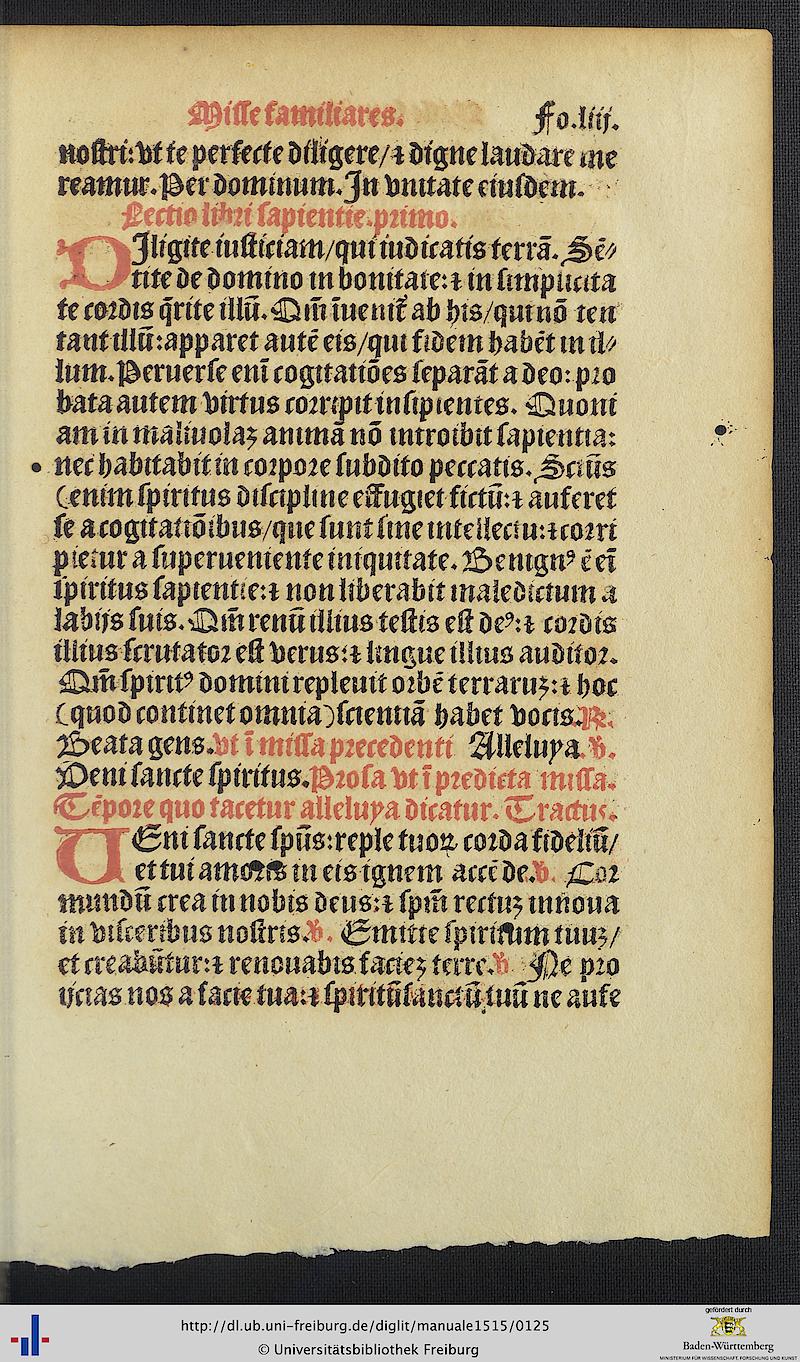 Misse familiares.
Fo.liij.
nostri: vt te perfecte diligere/⁊ digne laudare me
reamur. Per dominum. In vnitate eiusdem.
Lectio libri sapientie.primo.
DIligite iusticiam/qui iudicatis terrã. Sẽ⸗
tite de domino in bonitate: ⁊ in simplicita
te cordis q̃rite illũ. Qm̃ ĩuenit᷑ ab his/qui nõ ten
tant illũ: apparet autẽ eis/qui fidem habẽt in il⸗
lum. Peruerse enĩ cogitatiões separãt a deo: pro
bata autem virtus corripit insipientes. Quoni
am in maliuolaꝫ animã nõ introibit sapientia:
nec habitabit in corpore subdito peccatis. Sctũs
(enim spiritus discipline effugiet fictũ: ⁊ auferet
se a cogitatiõibus/que sunt sine intellectu: ⁊ corri
pietur a superueniente iniquitate. Benignꝰ ẽ eĩ
spiritus sapientie: ⁊ non liberabit maledictum a
labijs suis. Qm̃ renũ illius testis est deꝰ: ⁊ cordis
illius scrutator est verus: ⁊ lingue illius auditor.
Qm̃ spiritꝰ domini repleuit orbẽ terraruꝫ: ⁊ hoc
(quod continet omnia) scientiã habet vocis. ℟.
Beata gens. vt ĩ missa precedenti Alleluya. ℣.
Veni sancte spiritus. Prosa vt ĩ predicta missa.
Tẽpore quo tacetur alleluya dicatur. Tractus.
VEni sancte spũs: reple tuoꝝ corda fideliũ/
et tui amoris in eis ignem accẽde. ℣. Cor
mundũ crea in nobis deus: ⁊ spm̃ rectuꝫ innoua
in visceribus nostris. ℣. Emitte spiritum tuuꝫ/
et creabũtur: ⁊ renouabis facieꝫ terre. ℣ Ne pro
ijcias nos a facie tua: ⁊ spiritũ sanctũ tuũ ne aufe
http://dl.ub.uni-freiburg.de/diglit/manuale1515/0125
© Universitätsbibliothek Freiburg
gefördert durch
Baden-Württemberg
MINISTERIUM FÜR WISSENSCHAFT, FORSCHUNG UND KUNST